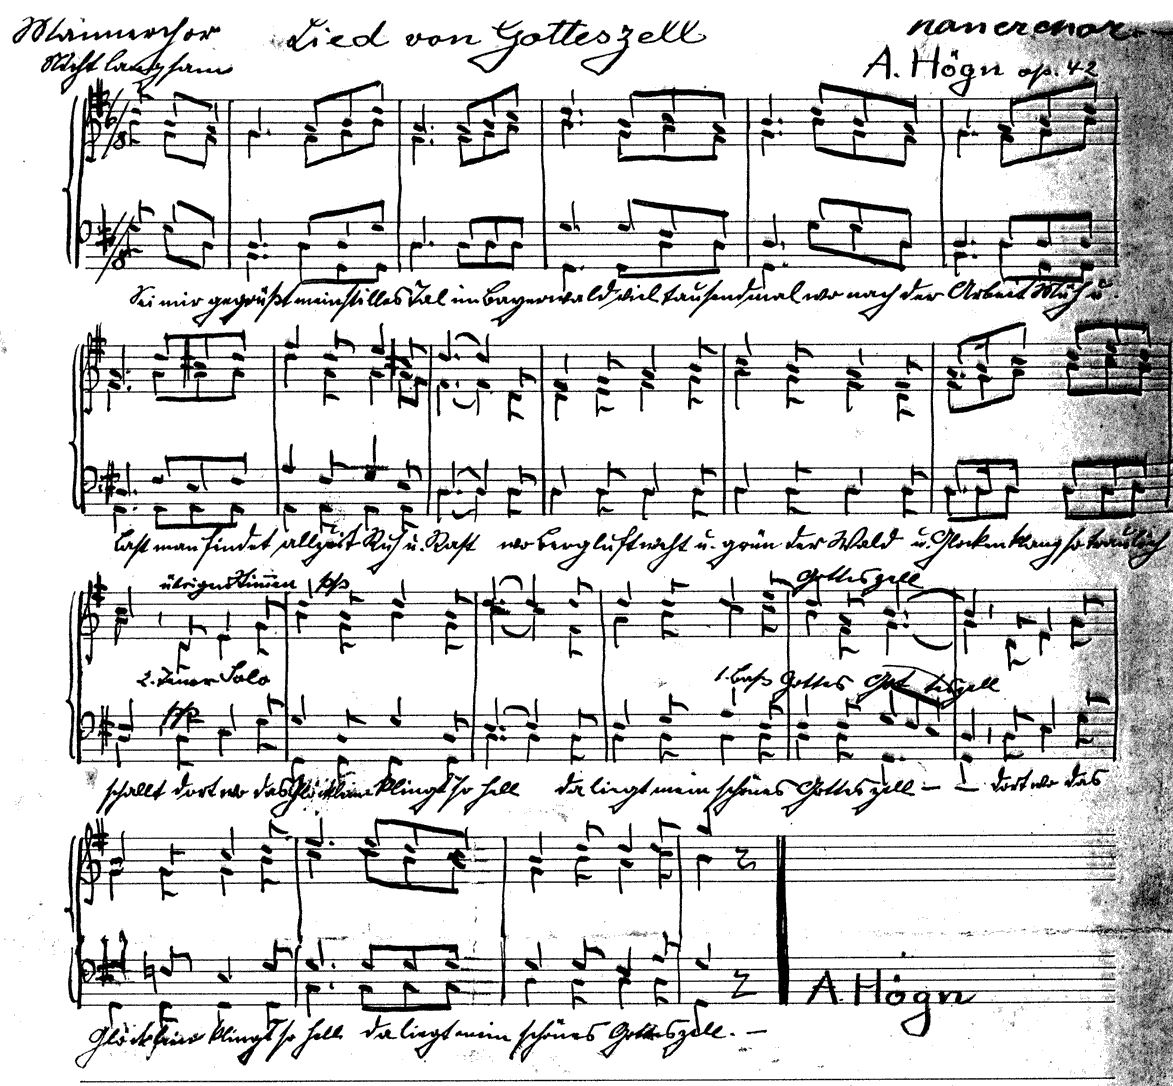 Männerchor Lied von Gotteszell
Nicht langsam A. Högn op. 42
Sei mir gegrüßt mein stilles Tal im Bayerwald viel tausendmal wo nach der Arbeit Müh u.
Last man findet allzeit Ruh u. Rast wo Bergluft weht u. grün der Wald u. Glockenklang so traulich
übrigen Stimmen pp Gotteszell
2. Tenor Solo 1. Baß Gottes Got teszell
pp
schallt dort wo das Glöcklein klingt so hell da liegt mein schönes Gotteszell – – dort wo das
A. Högn
Glöcklein klingt so hell da liegt mein schönes Gotteszell. –